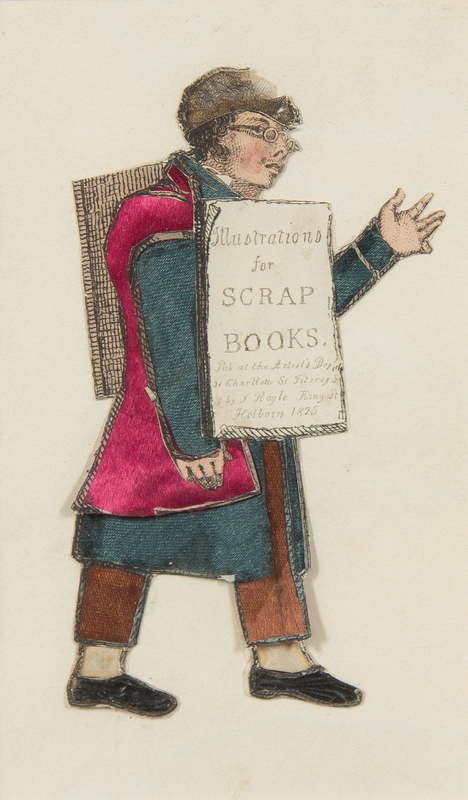 Illustrations
for
SCRAP
BOOKS.
Pub at the Artist's
Charlotte St Fitzroy
& by J Royle King St
Holborn 1825